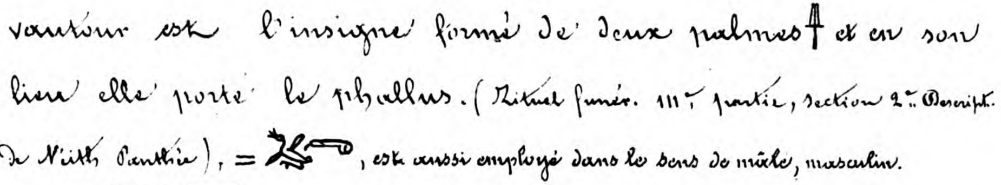 vautour est l'insigne formé de deux palmes et en son
lieu elle porte le phallus. (Rituel funér. IIIe partie, section 2e. Descript.
de Neith Panthée), = , est aussi employé dans le sens de mâle, masculin.